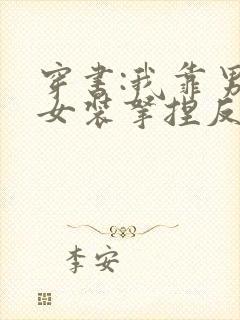 穿书:我靠男
女装拿捏反
李安